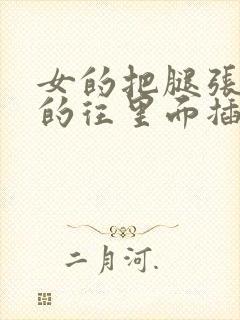 女的把腿張
的往里而插
二月河.